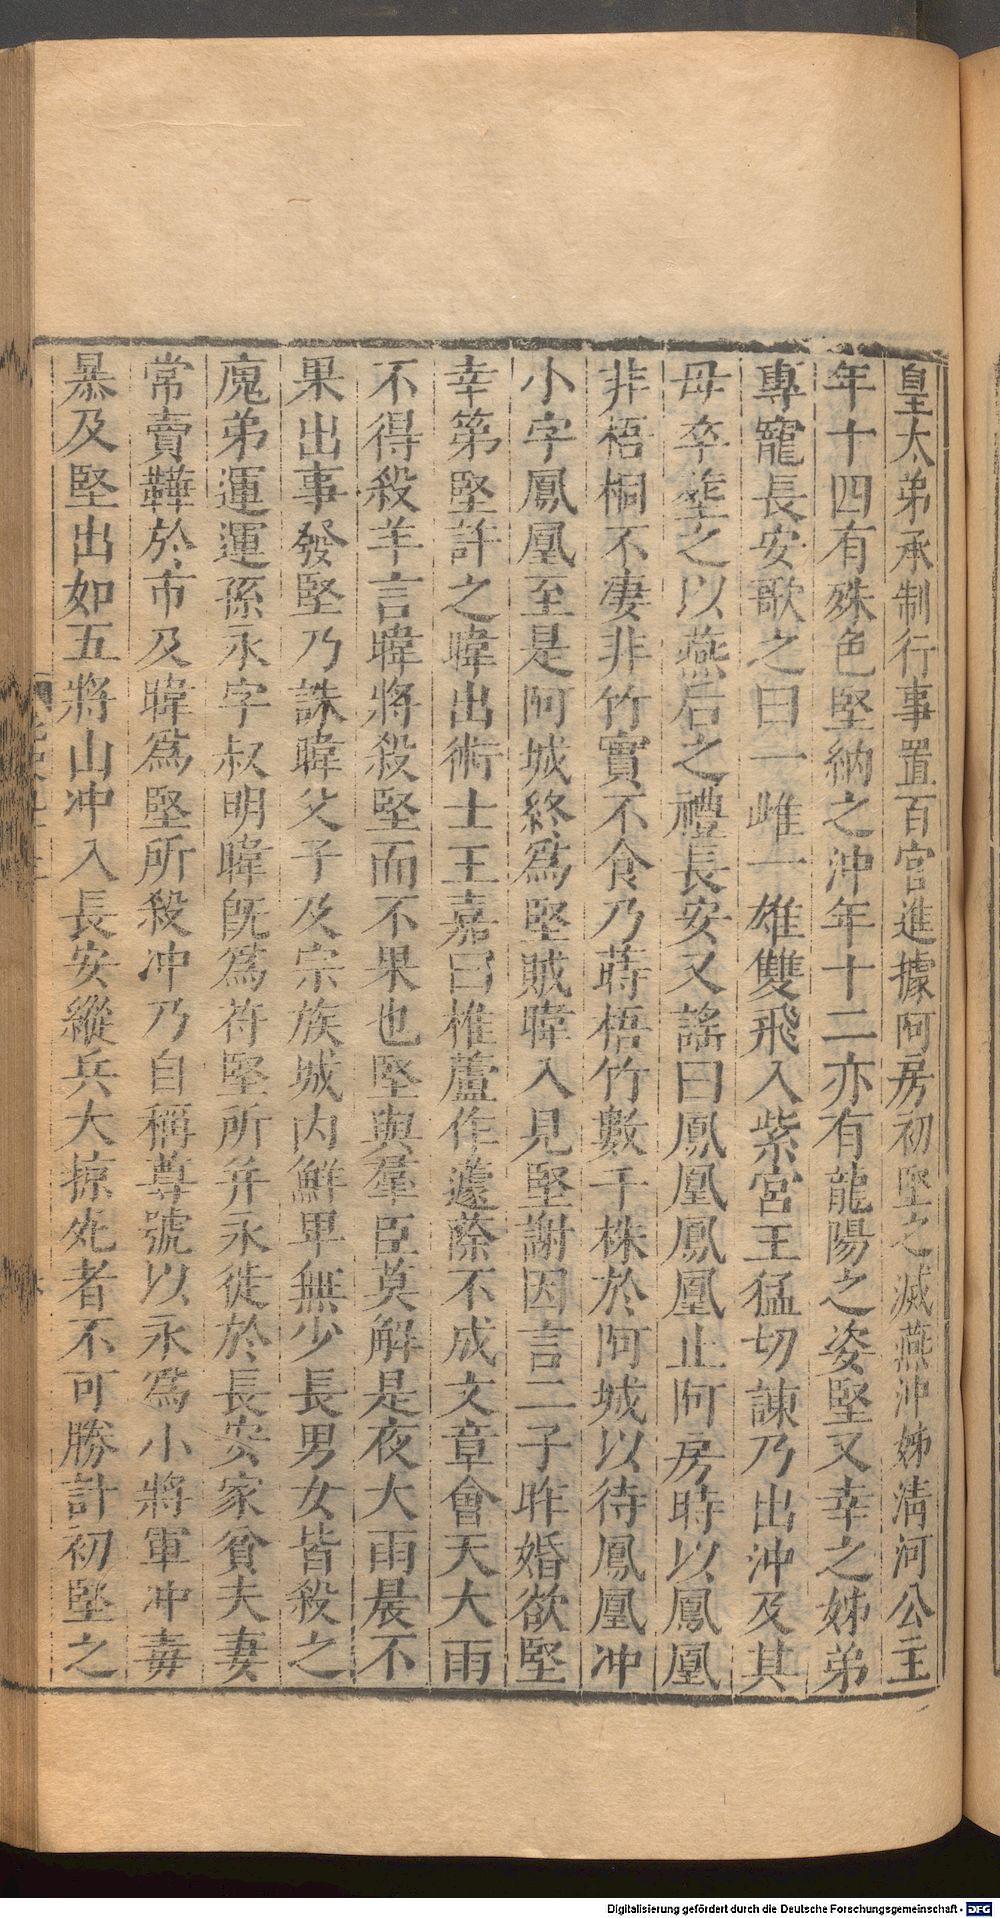 皇太弟承制行事置百官進據阿房初堅之滅燕沖姊清河公主
年十四有殊色堅納之沖年十二亦有龍陽之姿堅又幸之姊弟
專寵長安歌之曰一雌一雄雙飛入紫宮王猛切諫乃出沖及其
母卒塟之以燕后之禮長安又謠曰鳳凰鳳凰止阿房時以鳳凰
非梧桐不凄非竹實不食乃蒔梧竹數千株於阿城以待鳳凰冲
小字鳳凰至是阿城終爲堅賊暐入見堅謝因言二子昨婚欲堅
幸第堅許之暐出術士王嘉曰椎蘆作蘧蒢不成文章會天大雨
不得殺羊言暐將殺堅而不果也堅與羣臣莫解是夜大雨晨不
果出事發堅乃誅暐父子及宗族城內鮮卑無少長男女皆殺之
廆弟運運孫永字叔明暐旣爲苻堅所并永徙於長安家貧夫妻
常賣鞾於市及暐爲堅所殺冲乃自稱尊號以永爲小將軍冲毒
暴及堅出如五將山冲入長安縱兵大掠死者不可勝計初堅之
Digitalisierung gefördert durch die Deutsche Forschungsgemeinschaft - DFG